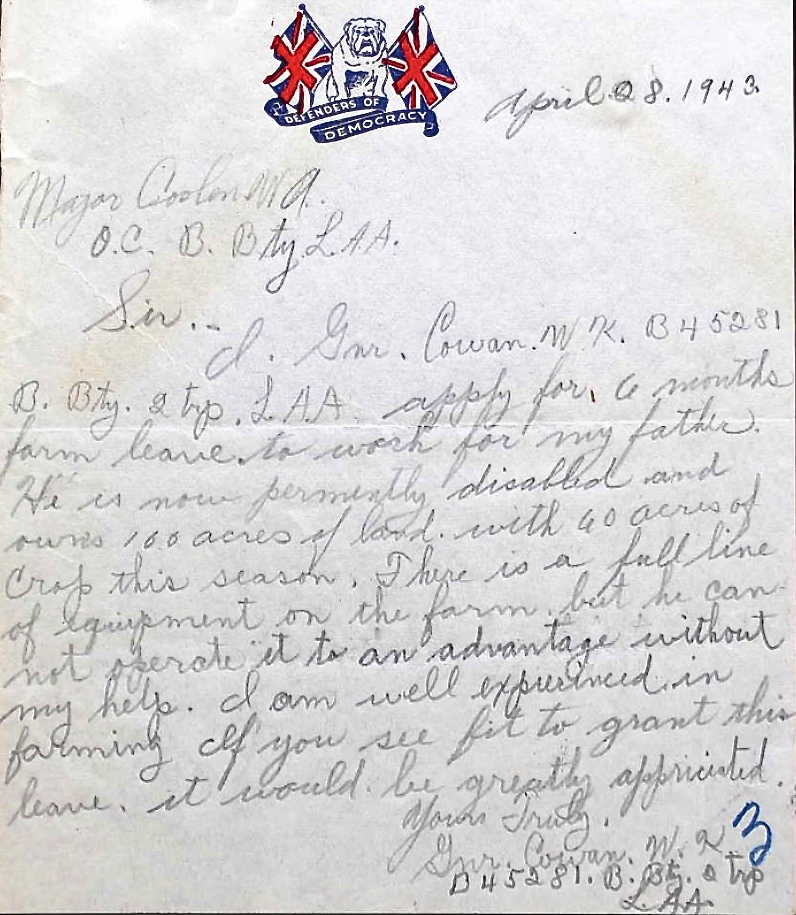 DEFENDERS OF
DEMOCRACY
April 28. 1943.
Major Coolen W A.
O.C. B. Bty L.A.A.
Sir..
I. Gnr. Cowan. W K. B45281
B. Bty. 2 trp. L A A apply for, 6 months
farm leave. to work for my father.
He is now permently disabled and
owns 100 acres of land. with 60 acres of
crop this season. There is a full line
of equipment on the farm. but he can
not operate it to an advantage without
my help. I am well expierinced in
farming If you see fit to grant this
leave. it would be greatly appriciated.
Yours Truly.
Gnr. Cowan. W. K
B45281. B. Bty. 2 trp
L.A.A.
3